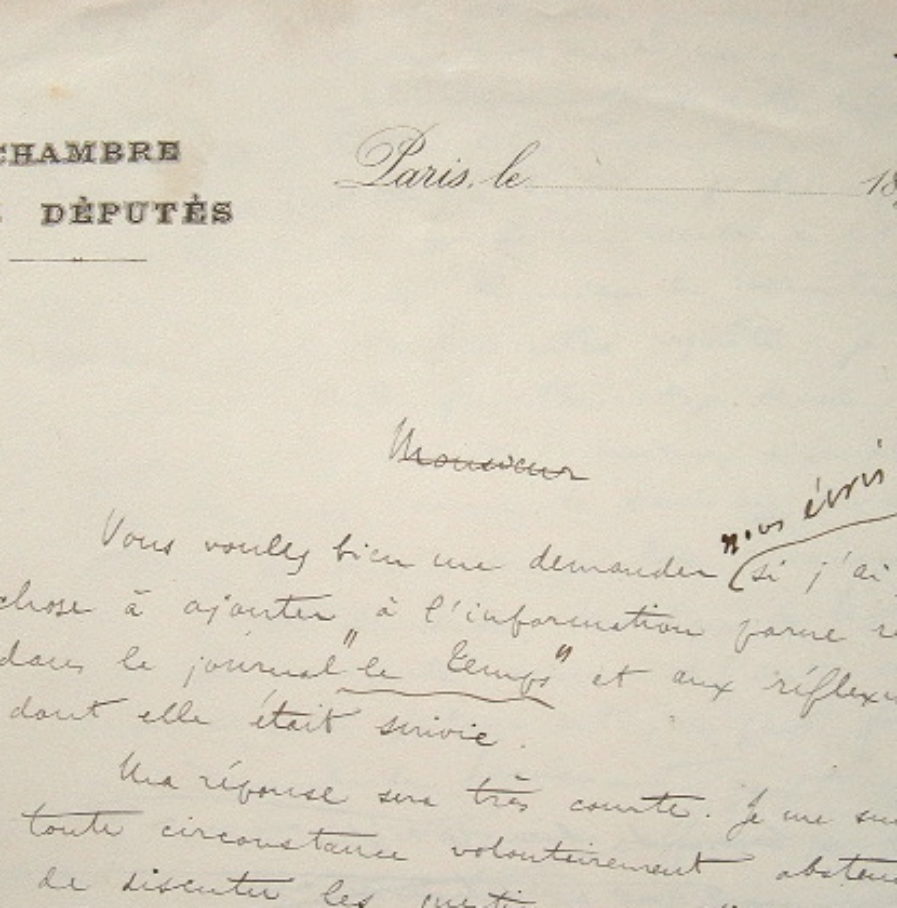 CHAMBRE
DÉPUTÉS
Paris, le 18
Monsieur
nous écris
Vous voulez bien me demander (si j'ai
chose à ajouter à l'information parue
dans le journal "le temps" et aux réflexi
dont elle était suivie.
Ma réponse sera très courte. Je me sui
toute circonstance volontairement absten
de discuter les questi